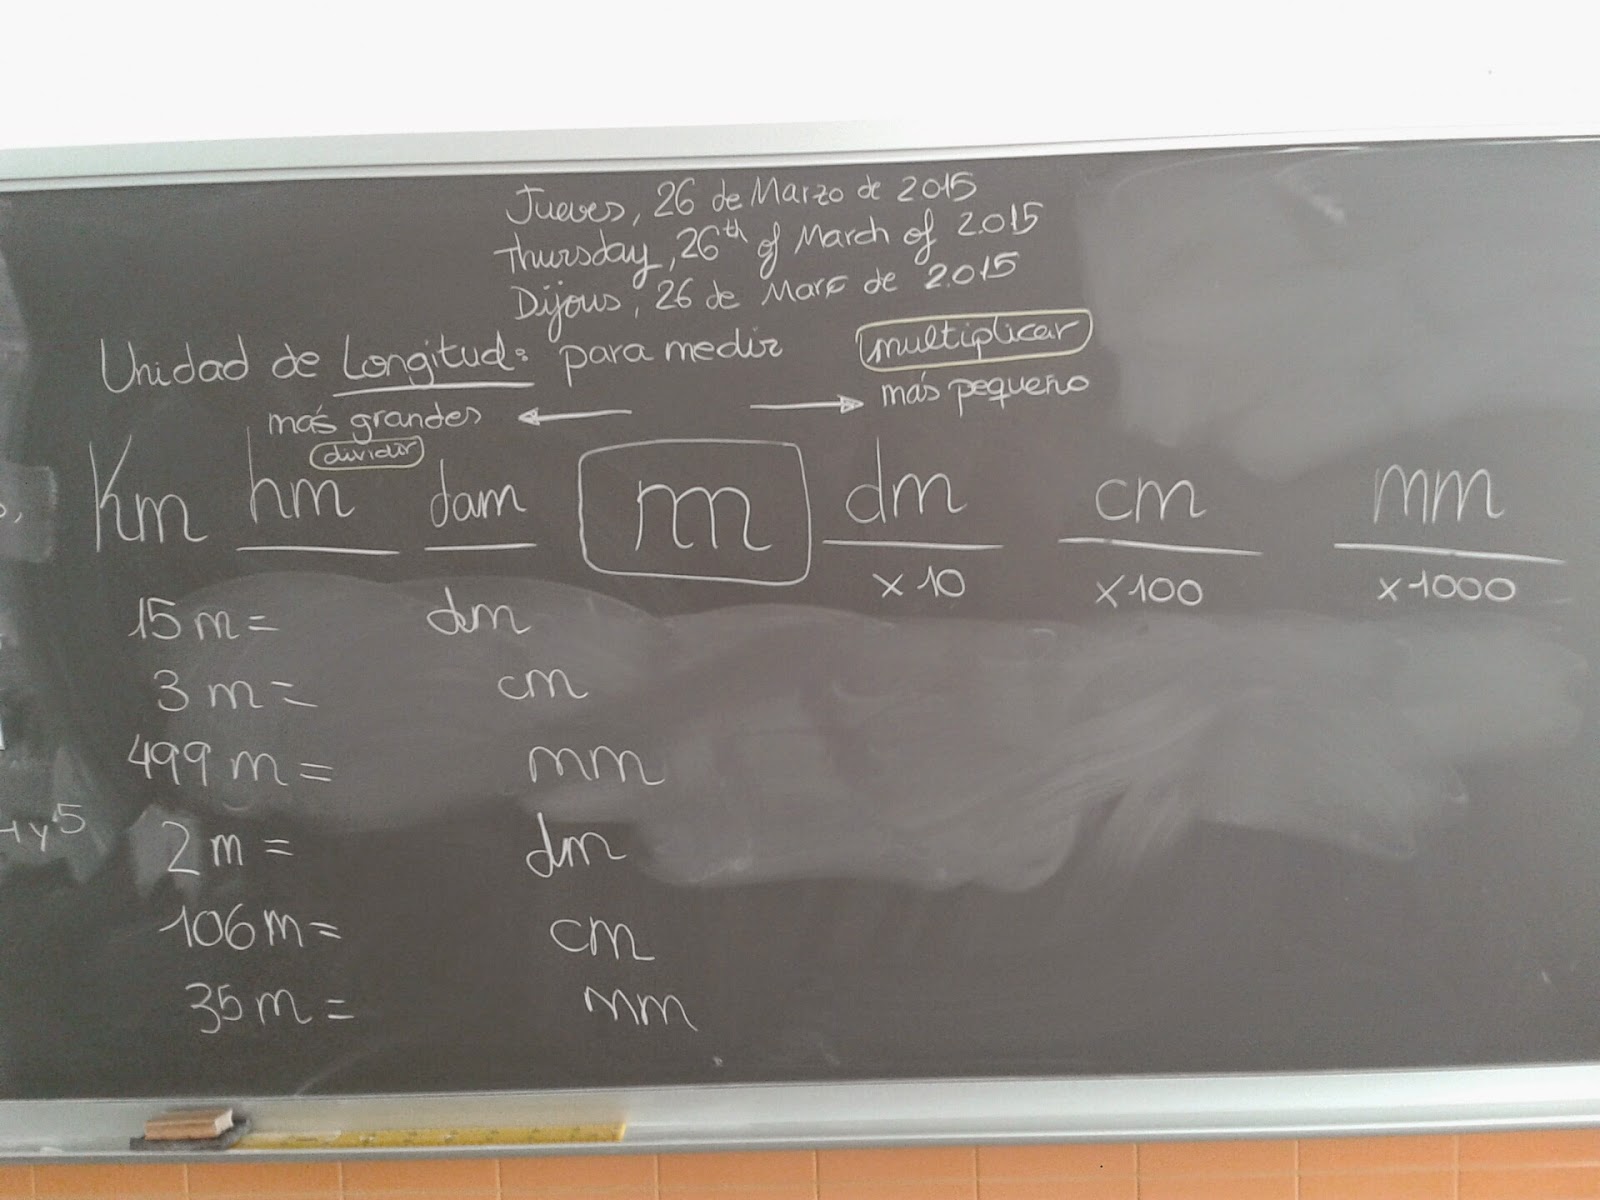 Jueves, 26 de Marzo de 2015
Thursday, 26th of March of 2015
Dijous, 26 de Març de 2015
Unidad de Longitud: para medir
multiplicar
más pequeño
más grandes
dividir
Km hm dam m dm cm mm
x 10 x 100 x 1000
15 m = dm
3 m = cm
499 m = mm
y 5
2 m = dm
106 m = cm
35 m = mm